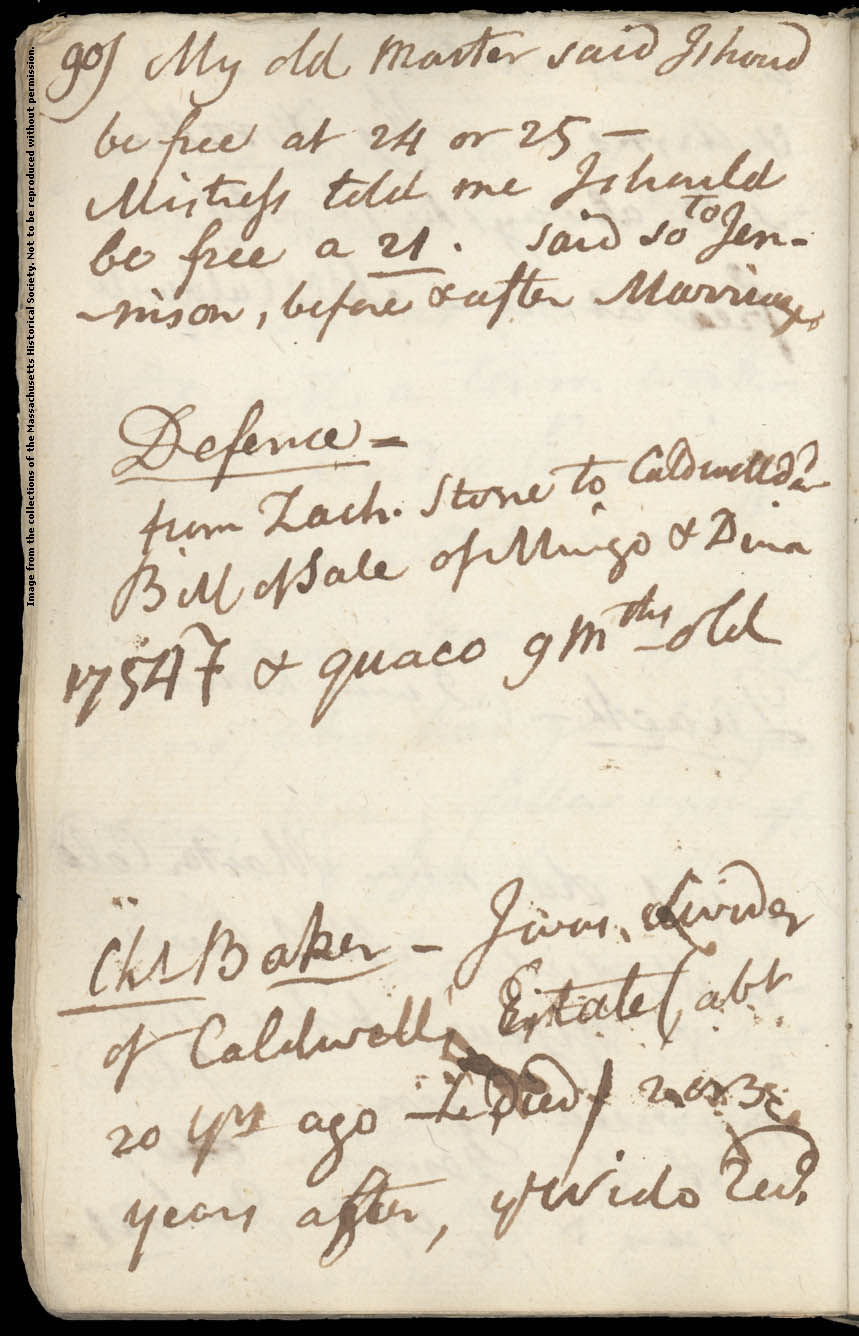 Image from the collections of the Massachusetts Historical Society. Not to be reproduced without permission.
90) My old Master said I shoud
be free at 24 or 25 —
Mistress told me I should
be free a 21. said so to Jen-
-nison, before & after Marriage
Defence —
from Zach. Stone to Caldwell
Bill of Sale of Mingo & Dina
1754 & quaco 9 mths old
Baker — I was divider
of Caldwell's Estate (abt
20 yrs ago He died) 2 or 3
years after, ye Wido